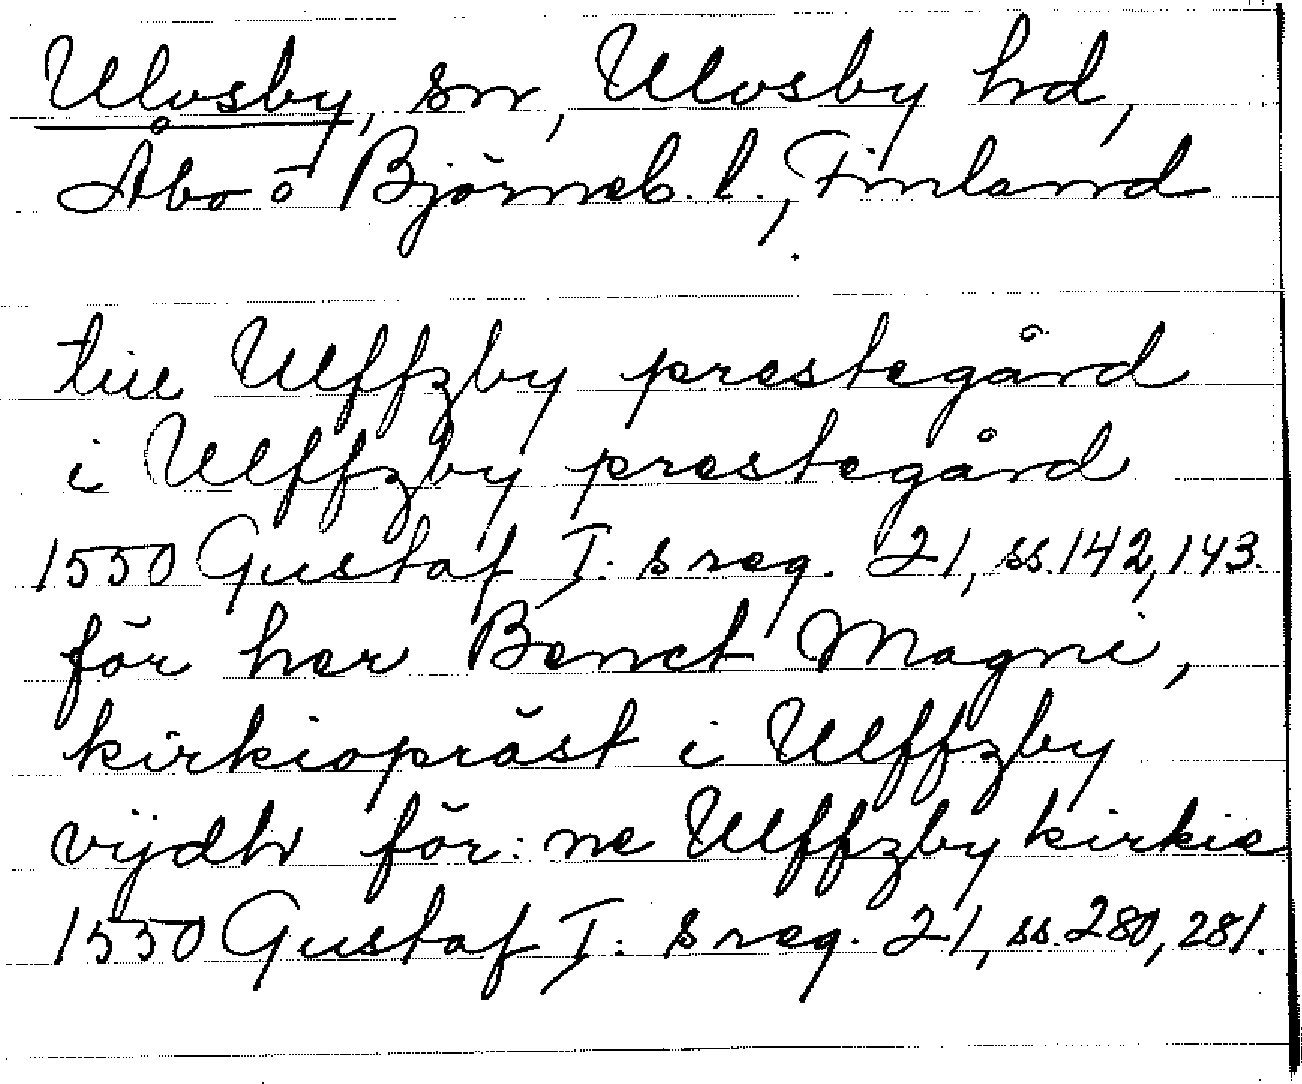 Ulvsby, sn, Ulvsby hd,
Åbo o Björneb. l., Finland
till Ulffzby prestegård
i Ulffzby prestegård
1550 Gustaf I:s reg. 21, ss. 142, 143.
för her Benct Magni,
kirkiopräst i Ulffzby
vijdh för:ne Ulffzby kirkie
1550 Gustaf I:s reg. 21, ss. 280, 281.